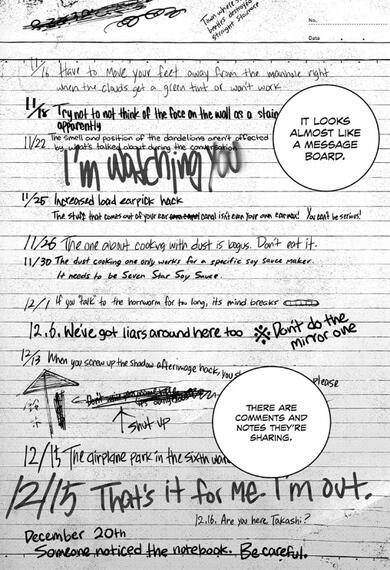 Town where
barrier destroyed
No.
Date
11/16 Have to move your feet away from the manhole right
when the clouds get a green tint or won't work
11/18 Try not to not think of the face on the wall as a stain
apparently
11/22 The smell and position of the dandelions aren't affected
by what's talked about during the conversation
I'm watching you
IT LOOKS
ALMOST LIKE
A MESSAGE
BOARD.
11/25 Increased load earpick hack
The stuff that comes out of your ear canal isn't even your own earwax! You can't be serious!
11/26 The one about cooking with dust is bogus. Don't eat it.
11/30 The dust cooking one only works for a specific soy sauce maker.
It needs to be Seven Star Soy Sauce.
12/1 If you "talk" to the hornworm for too long, its mind breaks
12.6. We've got liars around here too
※Don't do the
mirror one
12/13 When you screw up the shadow afterimage hack, you
please
shut up
THERE ARE
COMMENTS AND
NOTES THEY'RE
SHARING.
12/15 The airplane park in the sixth
12/15 That's it for me. I'm out.
12.16. Are you here, Takashi?
December 20th
Someone noticed the notebook. Be careful.